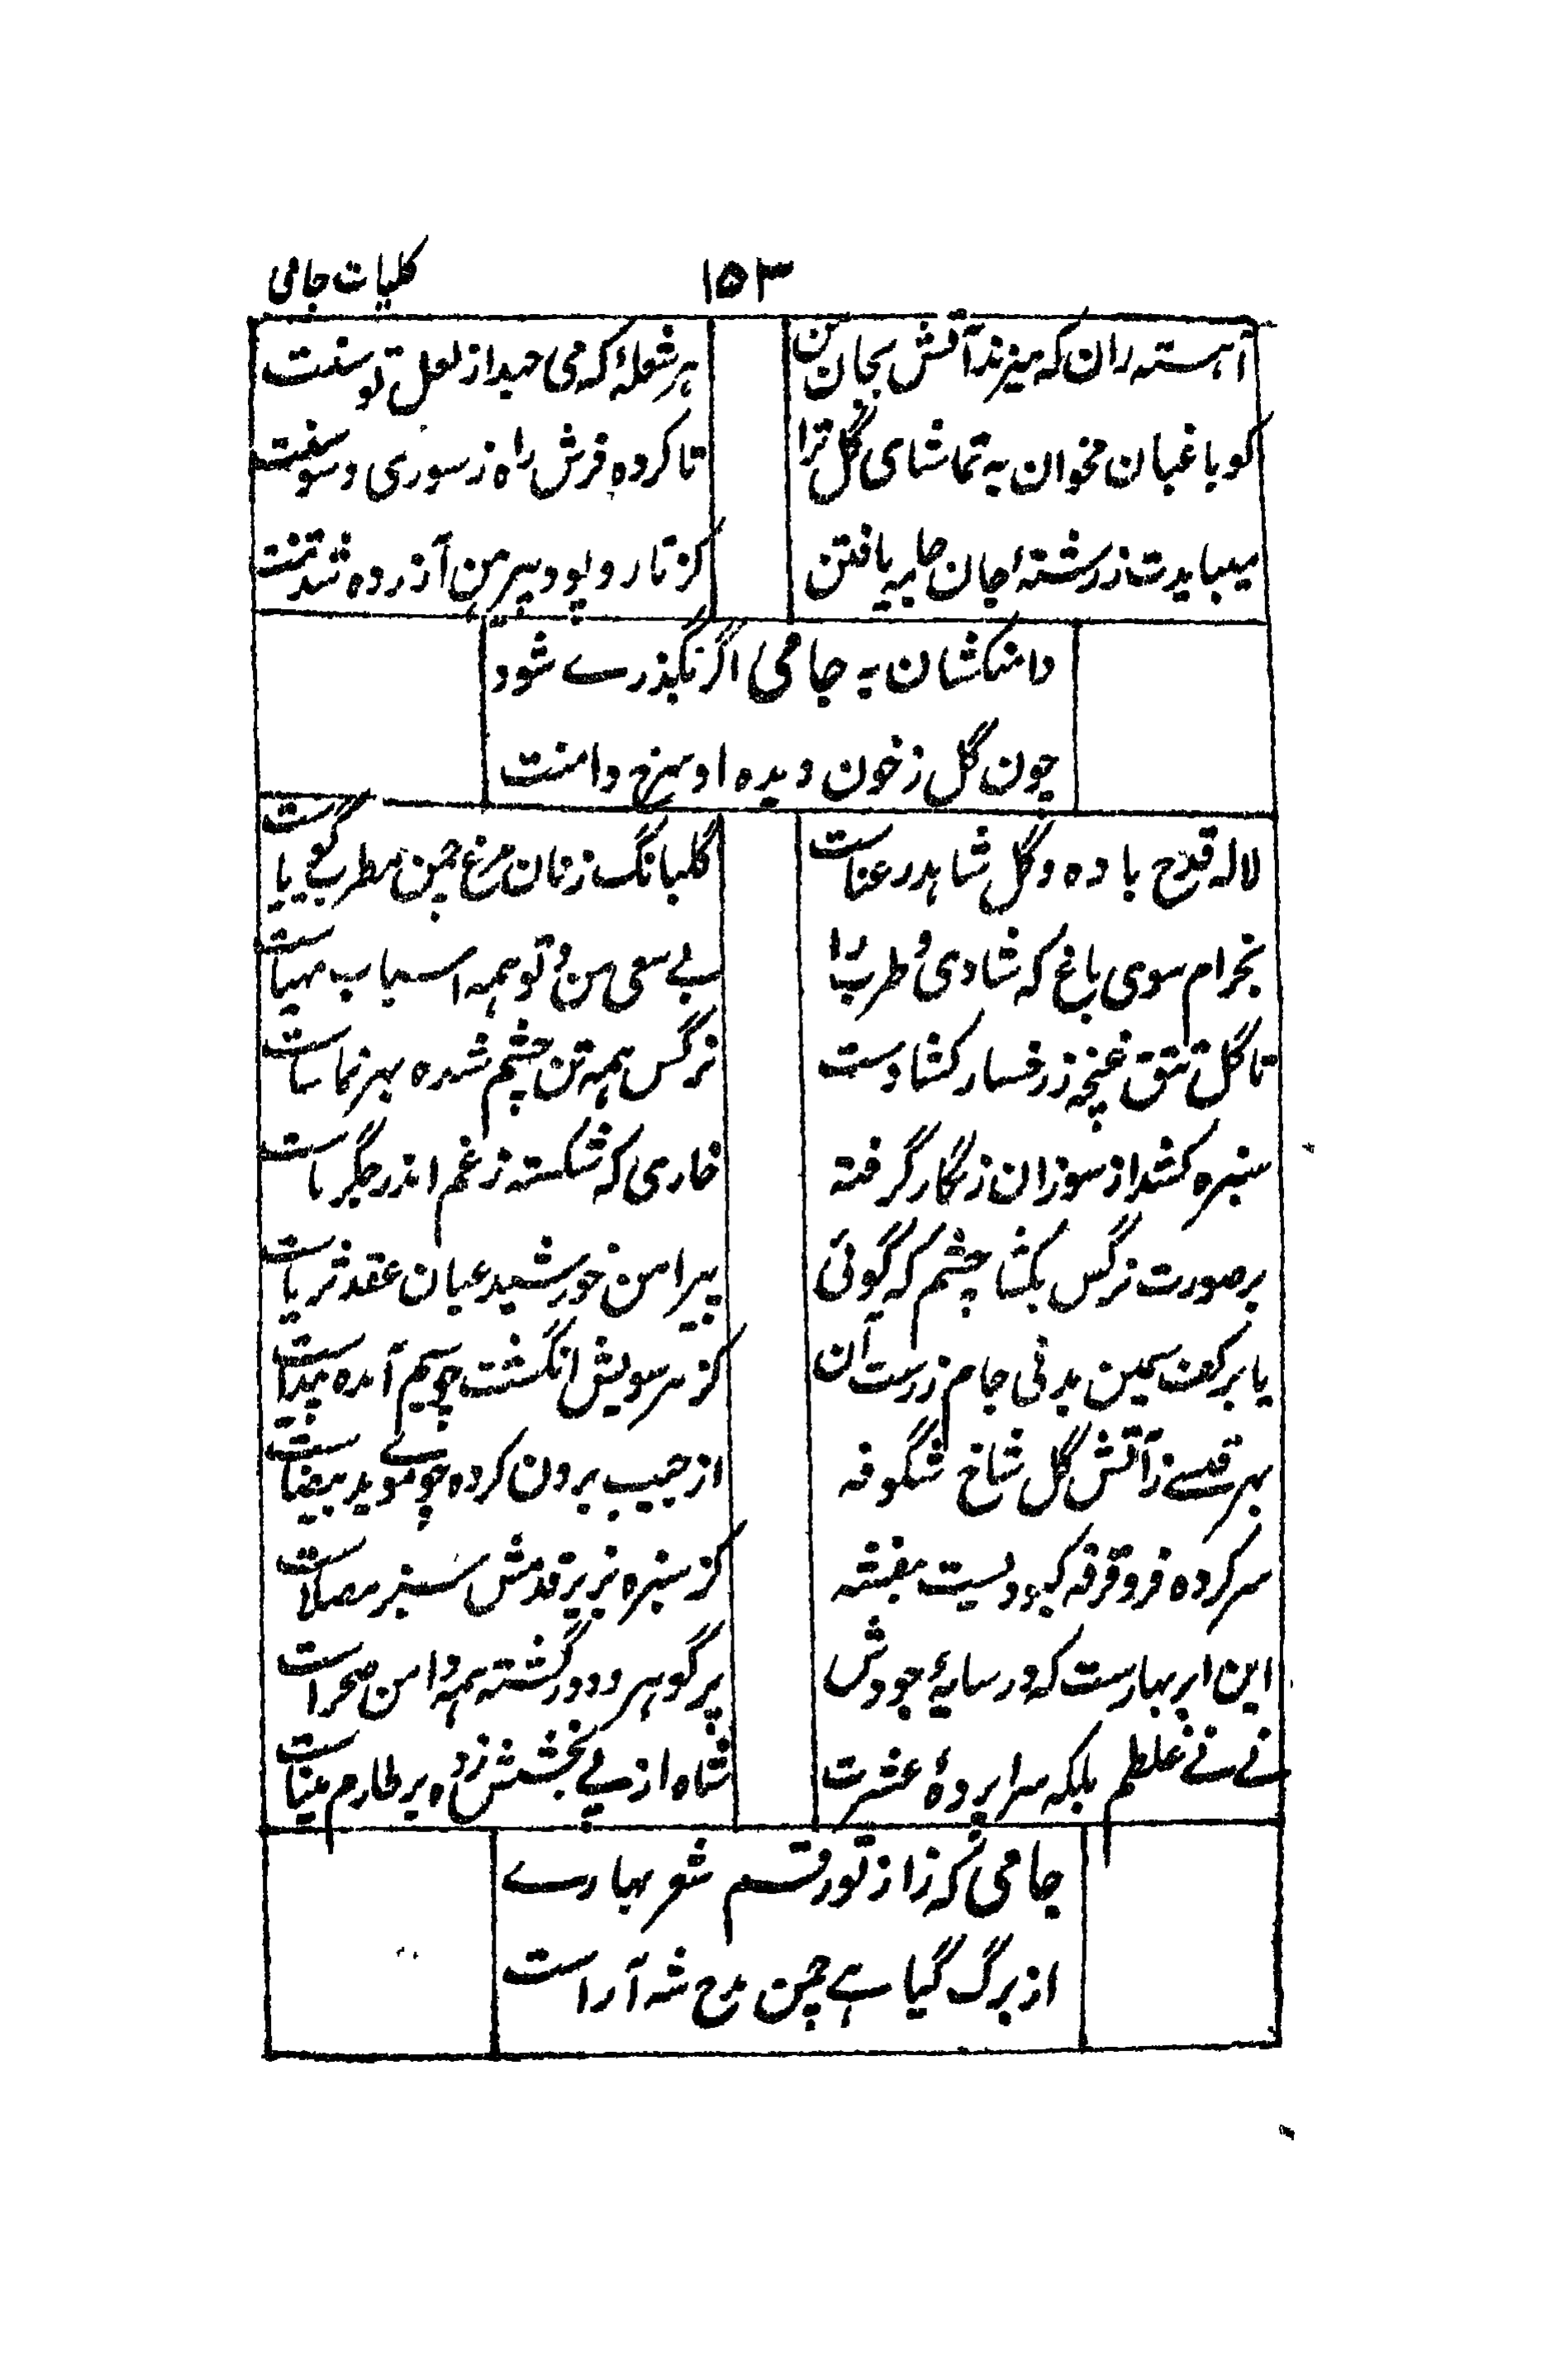 کلیات جامی
۱۵۳
آهسته ران که میزند آتش بجان من
هر شعلهٔ که می جهد از لعل توسنت
کو باغبان مخوان به تماشای گل ترا
تا کرده فرش راه ز سوری و سوسنت
میبایدت ز رشتهٔ جان جامه یافتن
کز تار و پود پیرمن آزرده شد تنت
دامنکشان به جامی اگر نگذرے شود
چون گل ز خون دیده او سرخ دامنت
لاله قدح باده و گل شاهد رعناست
گلبانگ زنان مرغ چمن مطرب گویاست
بخرام سوی باغ که شادی و طرب را
بے سعی من و تو همه اسباب مهیاست
تا گل تتق غنچه ز رخسار کشادست
نرگس همه تن چشم شده بهر تماشاست
سبزه کشد از سوزان زنگار گرفته
خاری که شکسته ز غم اندر جگر ماست
بر صورت نرگس بکشا چشم که گوئی
پیرامن خورشید عیان عقد ثریاست
یا بر کف سیمین بدنی جام زرست آن
کز هر سویش انگشت چو سیم آمده پیداست
بهر قبسے ز آتش گل شاخ شگوفه
از جیب برون کرده چو موسے ید بیضاست
سر کرده فرو قرفه کبودیست بنفشه
کز سبزه بزیر قدمش سبز مصلاست
این ابر بهارست که در سایهٔ جودش
پر گوهر و در گشته همه دامن صحراست
نے نے غلطم بلکه سراپردهٔ عشرت
شاه از پے بخشش زده بر طارم میناست
جامی نه که زاد از تو رقم شعر بهارے
از برگ گیاهے چمن مدح شه آراست